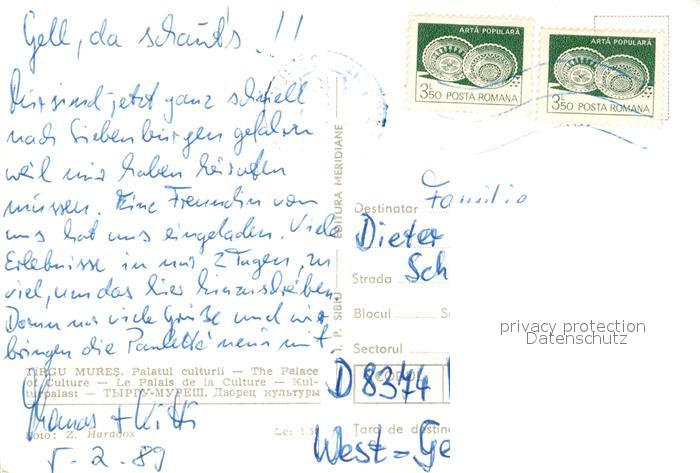 Gell, da schaut's !!
Wir sind jetzt ganz schnell
nach Siebenbürgen gefahren
weil wir haben heiraten
müssen. Eine Freundin von
uns hat uns eingeladen. Viele
Erlebnisse in nur 2 Tagen, zu
viel, um das hier hinzuschreiben.
Dann nur viele Grüße und wir
bringen die mit.
Thomas + Kitti
5-2-89
TÎRGU MUREȘ. Palatul culturii — The Palace
of Culture — Le Palais de la Culture — Kul-
turpalast — ТЫРГУ-МУРЕШ. Дворец культуры
Foto: Z. Haragos
I. P. SIBIU — EDITURA MERIDIANE
ARTĂ POPULARĂ
3L50 POSTA ROMANA
ARTĂ POPULARĂ
3L50 POSTA ROMANA
Familie
Destinatar
Dieter
Sch
Strada
Blocul
Sectorul
D 8374
Țara de destin
West=Ge
privacy protection
Datenschutz